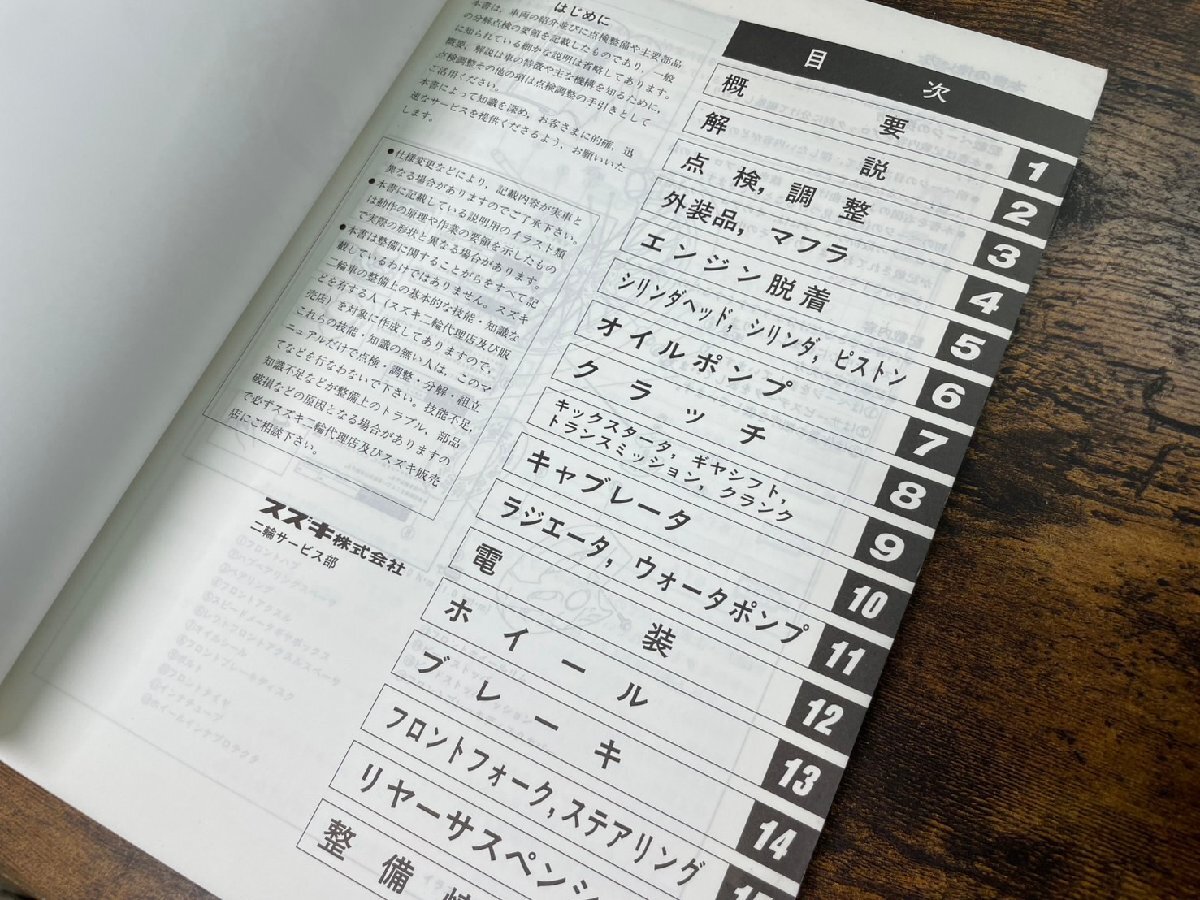 はじめに
本書は、車両の紹介並びに点検整備や主要部品
の分解点検の要領を記載したものであり、一般
に知られている細かな説明は省略してあります。
概要、解説は車の特徴や主な機構を知るために、
点検調整その他の項は点検調整の手引きとして
ご活用ください。
本書によって知識を深め、お客さまに的確、迅
速なサービスを提供くださるよう、お願いいた
します。
●仕様変更などにより、記載内容が実車と
異なる場合がありますのでご了承下さい。
●本書に記載している説明用のイラスト類
は動作の原理や作業の要領を示したもの
で実際の形状と異なる場合があります。
●本書は整備に関することがらをすべて記
載しているわけではありません。スズキ
二輪車の整備上の基本的な技能・知識な
どを有する人（スズキ二輪代理店及び販
売店）を対象に作成してありますので、
これらの技能・知識の無い人は、このマ
ニュアルだけで点検・調整・分解・組立
てなどを行なわないで下さい。技能不足、
知識不足などが整備上のトラブル、部品
破損などの原因となる場合がありますの
で必ずスズキ二輪代理店及びスズキ販売
店にご相談下さい。
スズキ株式会社
二輪サービス部
目次
概要 1
解説 2
点検，調整 3
外装品，マフラ 4
エンジン脱着 5
シリンダヘッド，シリンダ，ピストン 6
オイルポンプ 7
クラッチ 8
キックスタータ，ギヤシフト，
トランスミッション，クランク 9
キャブレータ 10
ラジエータ，ウォータポンプ 11
電装 12
ホイール 13
ブレーキ 14
フロントフォーク，ステアリング 15
リヤーサスペンシ
整備